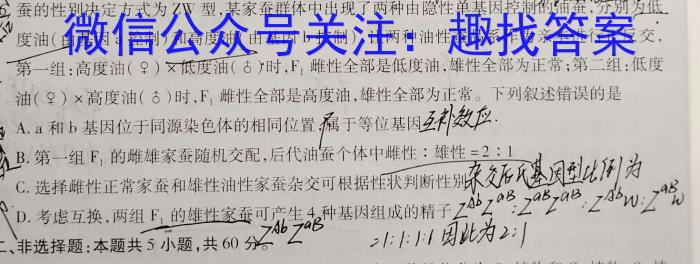 蚕的性别决定方式为 ZW 型,某家蚕群体中出现了两种由隐性单基因控制的油蚕,分别为低
微信公众号关注:趣找答案
度油(由基因a控制)和高度油
第一组:高度油(♀)×低度油(♂)时,F₁ 雌性全部是低度油,雄性全部为正常;第二组:低度
油(♀)×高度油(♂)时,F₁ 雌性全部是高度油,雄性全部为正常。下列叙述错误的是
A. a 和 b 基因位于同源染色体的相同位置,属于等位基因 互补效应.
B. 第一组 F₁ 的雌雄家蚕随机交配,后代油蚕个体中雌性:雄性=2:1
C. 选择雌性正常家蚕和雄性油性家蚕杂交可根据性状判断性别 杂交后代基因型比例为
D. 考虑互换,两组 F₁ 的雄性家蚕可产生 4 种基因组成的精子 Z^Ab Z^aB : Z^aB Z^aB : Z^Ab W : Z^aB W
Z^Ab Z^aB =1:1:1:1 因此为2:1
二、非选择题:本题共 5 小题,共 60 分。